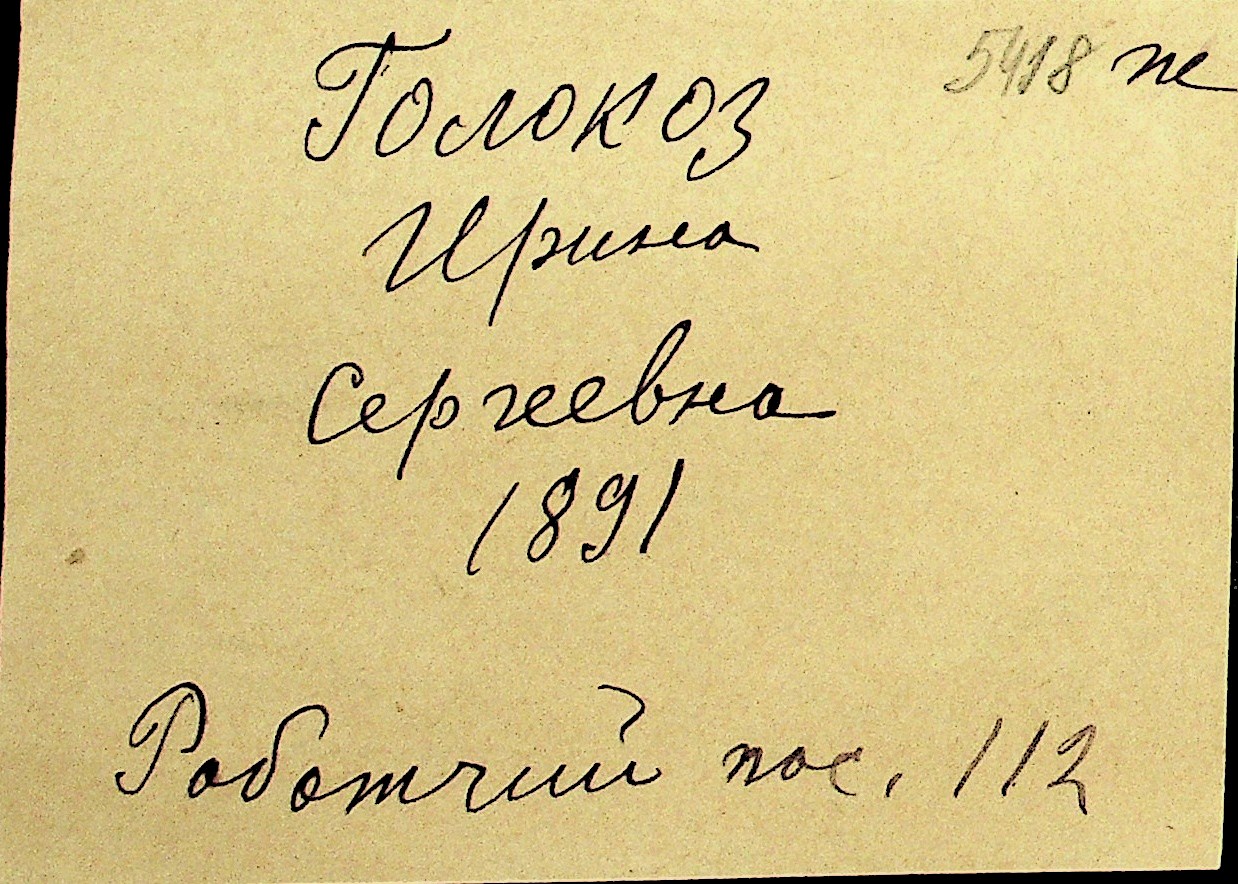 5418 пе
Голокоз
Ирина
Сергеевна
1891
Работчий пос. 112